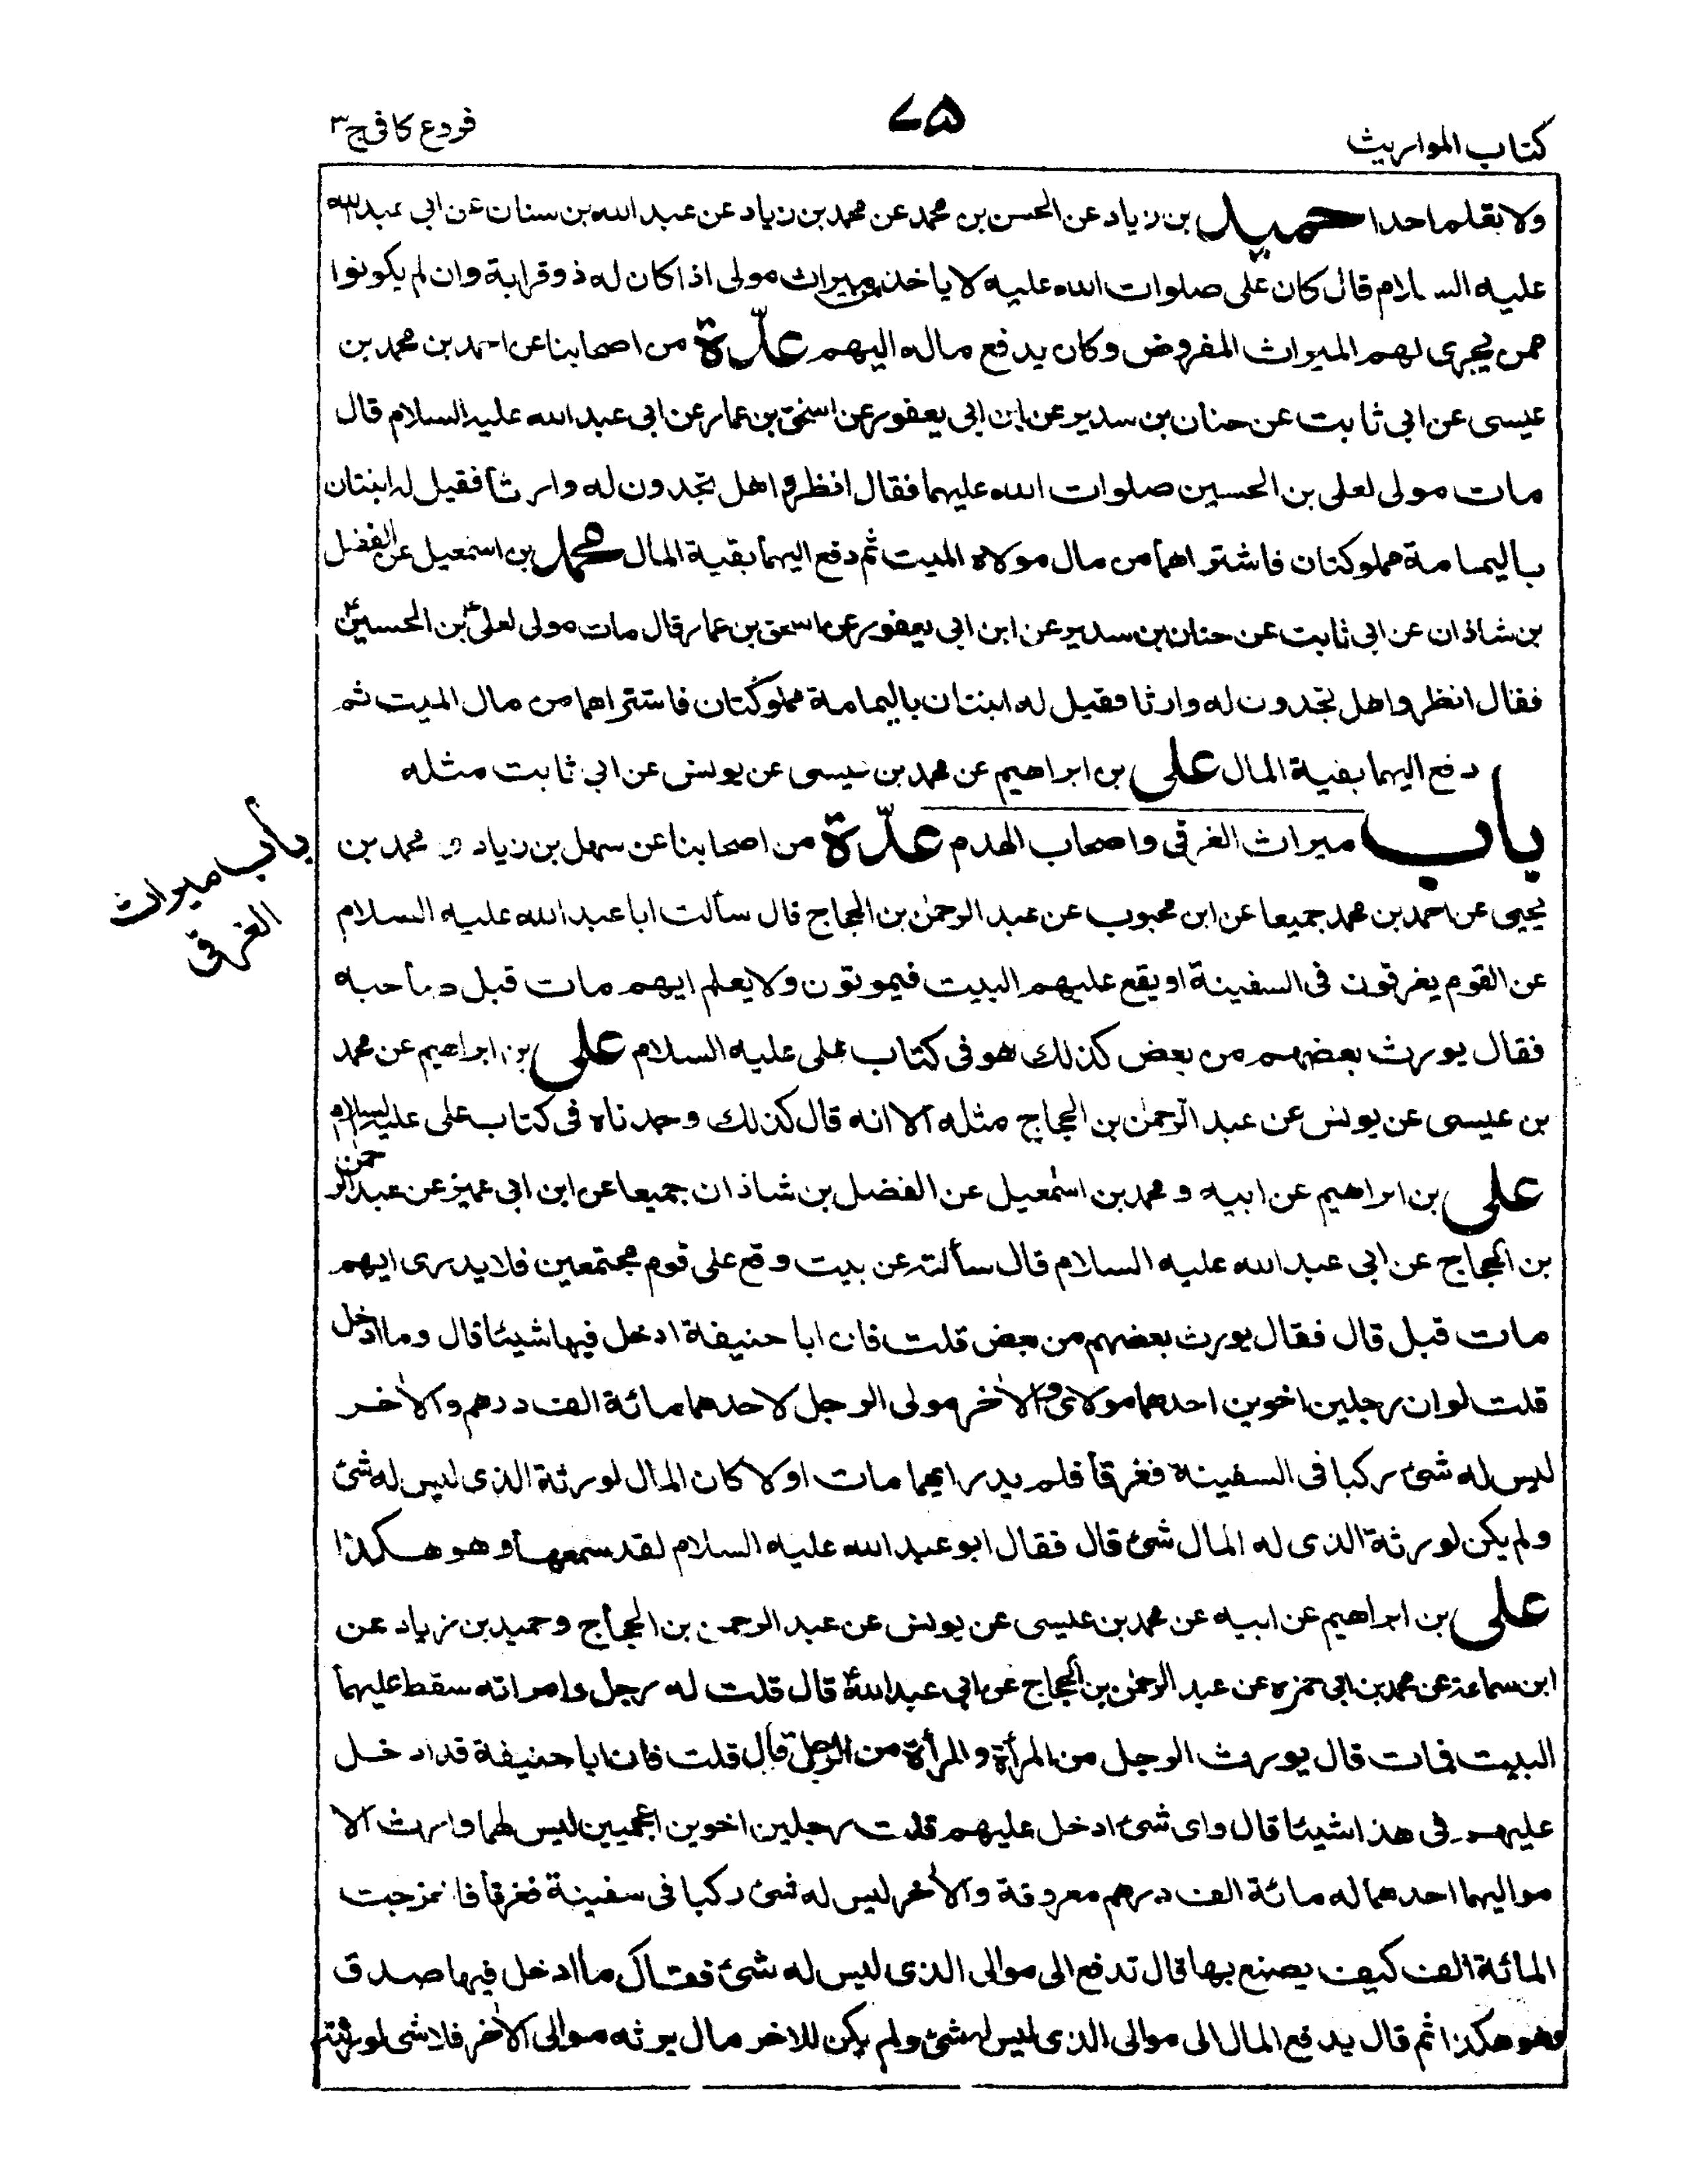 كتاب المواريث
٧٥
فروع كافي ج٣
ولا بقلم احدا حميد بن زياد عن الحسن بن محمد عن محمد بن زياد عن عبد الله بن سنان عن ابي عبد الله
عليه السلام قال كان على صلوات الله عليه لا ياخذ ميراث مولى اذا كان له ذو قرابة وان لم يكونوا
ممن يجرى لهم الميراث المفروض وكان يدفع ماله اليهم عدّة من اصحابنا عن احمد بن محمد بن
عيسى عن ابي ثابت عن حنان بن سدير عن ابن ابي يعفور عن اسحق بن عمار عن ابي عبد الله عليه السلام قال
مات مولى لعلى بن الحسين صلوات الله عليهما فقال انظروا هل تجدون له وارثا فقيل له ابنتان
باليمامة مملوكتان فاشتراهما من مال مولاه الميت ثم دفع اليهما بقية المال محمد بن اسمعيل عن الفضل
بن شاذان عن ابي ثابت عن حنان بن سدير عن ابن ابي يعفور عن اسحق بن عمار قال مات مولى لعلى بن الحسين
فقال انظروا هل تجدون له وارثا فقيل له ابنتان باليمامة مملوكتان فاشتراهما من مال الميت ثم
دفع اليهما بقية المال على بن ابراهيم عن محمد بن عيسى عن يونس عن ابي ثابت مثله
باب ميراث الغرقى واصحاب الهدم عدّة من اصحابنا عن سهل بن زياد و محمد بن
باب ميراث
الغرقى
يحيى عن احمد بن محمد جميعا عن ابن محبوب عن عبد الرحمن بن الحجاج قال سألت ابا عبد الله عليه السلام
عن القوم يغرقون فى السفينة او يقع عليهم البيت فيموتون ولا يعلم ايهم مات قبل صاحبه
فقال يورث بعضهم من بعض كذلك هو فى كتاب على عليه السلام على بن ابراهيم عن محمد
بن عيسى عن يونس عن عبد الرحمن بن الحجاج مثله الا انه قال كذلك وجدناه فى كتاب على عليه السلام
على بن ابراهيم عن ابيه و محمد بن اسمعيل عن الفضل بن شاذان جميعا عن ابن ابى عمير عن عبد الرحمن
بن الحجاج عن ابى عبد الله عليه السلام قال سألته عن بيت وقع على قوم مجتمعين فلا يدرى ايهم
مات قبل قال فقال يورث بعضهم من بعض قلت فان ابا حنيفة ادخل فيها شيئا قال وما ادخل
قلت لو ان رجلين اخوين احدهما مولاى والاخر مولى الرجل لاحدهما مائة الف درهم والاخر
ليس له شئ ركبا فى السفينة فغرقا فلم يدر ايهما مات اولا كان المال لورثة الذى ليس له شئ
ولم يكن لورثة الذى له المال شئ قال فقال ابو عبد الله عليه السلام لقد سمعها وهو هكذا
على بن ابراهيم عن ابيه عن محمد بن عيسى عن يونس عن عبد الرحمن بن الحجاج وحميد بن زياد عن
ابن سماعة عن محمد بن ابى حمزه عن عبد الرحمن بن الحجاج عن ابى عبد الله قال قلت له رجل وامراته سقط عليهما
البيت فمات قال يورث الرجل من المرأة والمرأة من الرجل قال قلت فان ابا حنيفة قد ادخل
عليهم فى هذا شيئا قال واى شئ ادخل عليهم قلت رجلين اخوين اعجميين ليس لهما وارث الا
مواليهما احدهما له مائة الف درهم معروفة والاخر ليس له شئ ركبا فى سفينة فغرقا فاخرجت
المائة الف كيف يصنع بها قال تدفع الى موالى الذى ليس له شئ فقال ما ادخل فيها صدق
وهو هكذا ثم قال يدفع المال الى موالى الذى ليس له شئ ولم يكن للاخر مال يرثه موالى الاخر فلا شى لورثته